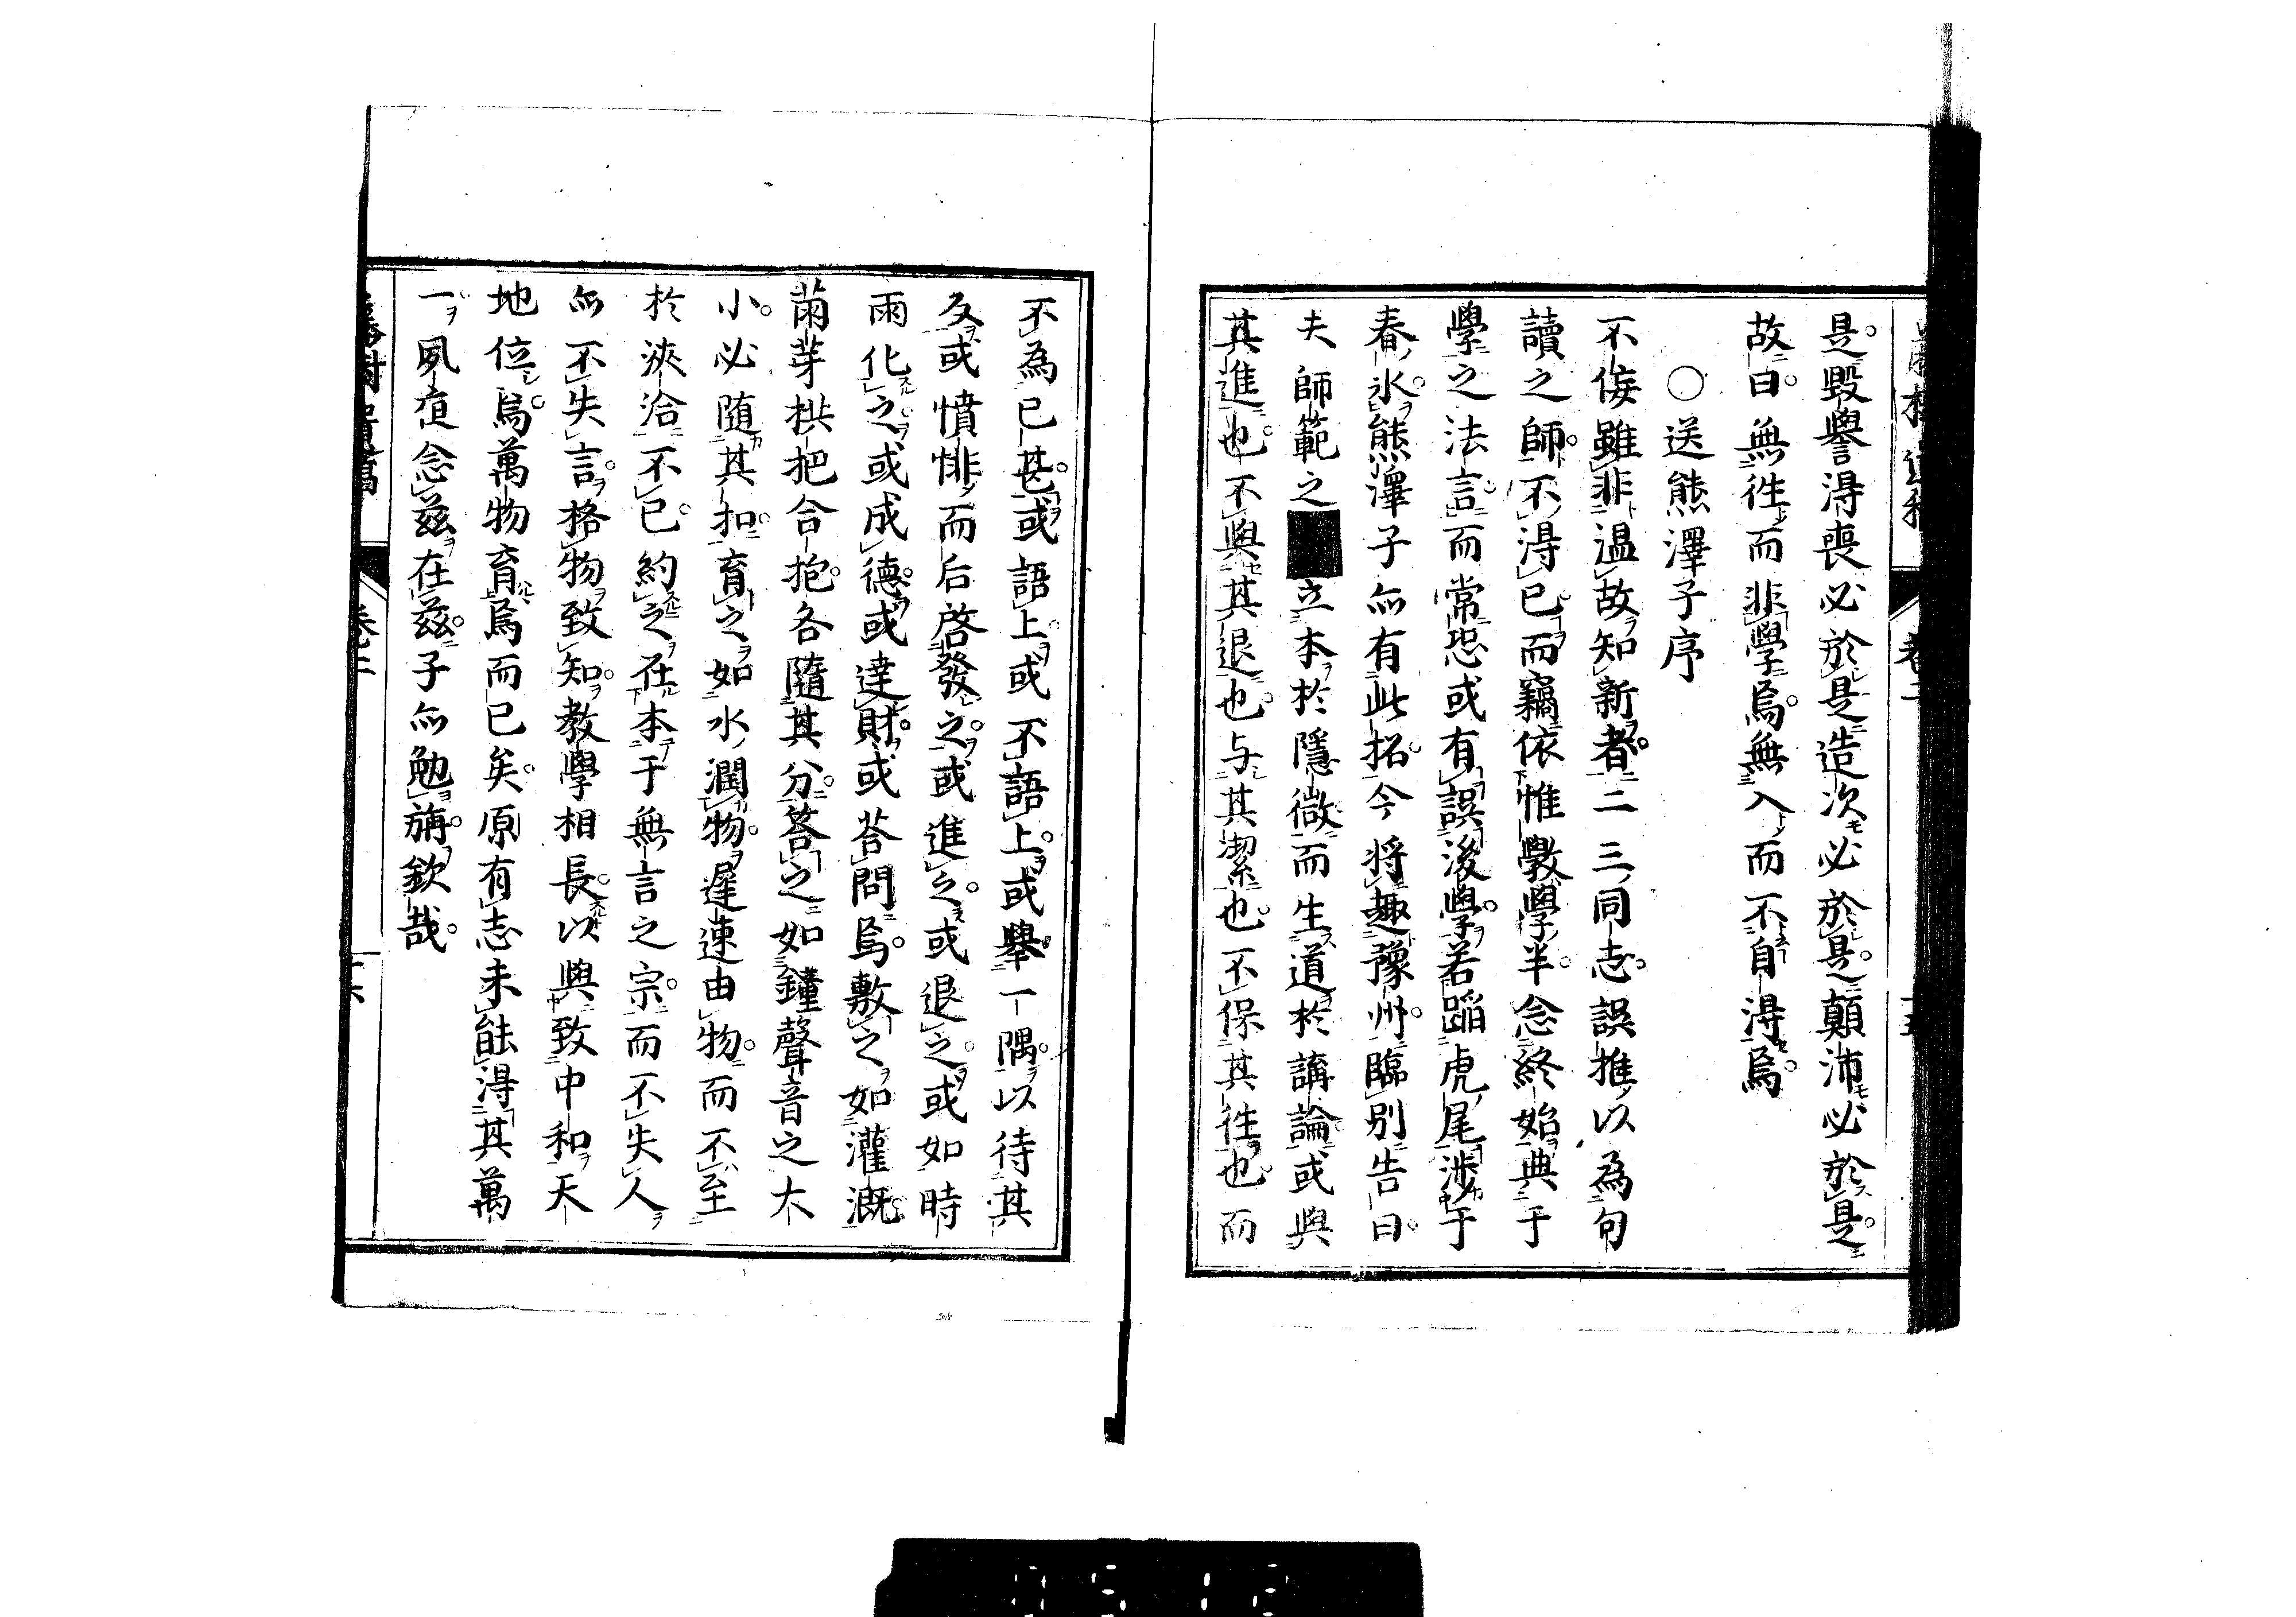 是毀譽得喪必於是造次必於是顛沛必於是
故曰無徃而非學焉無入而不自得焉
○送熊澤子序
不侫雖非温故知新者二三同志誤推以為句
讀之師不得已而竊依惟斅學半念終始典于
學之法言而常恐或有誤後學若蹈虎尾渉于
春氷熊澤子亦有此招今將趣豫州臨別告曰
夫師範之■立本於隱微而生道於講論或與
其進也不與其退也与其潔也不保其徃也而
不為已甚或語上或不語上或擧一隅以待其
反或憤悱而后啓發之或進之或退之或如時
雨化之或成德或達財或荅問焉敷之如灌漑
萠芽拱把合抱各隨其分荅之如鐘聲音之大
小必随其扣育之如水潤物遲速由物而不至
於浹洽不已約之在本于無言之宗而不失人
亦不失言格物致知教學相長以與致中和天
地位焉萬物育焉而已矣原有志未能得其萬
一夙夜念茲在茲子亦勉旃欽哉